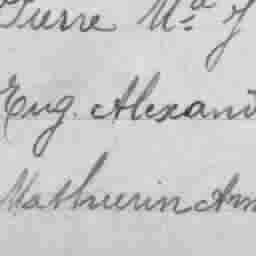 Pierre Ma J
Eug. Alexand
Mathurin Am